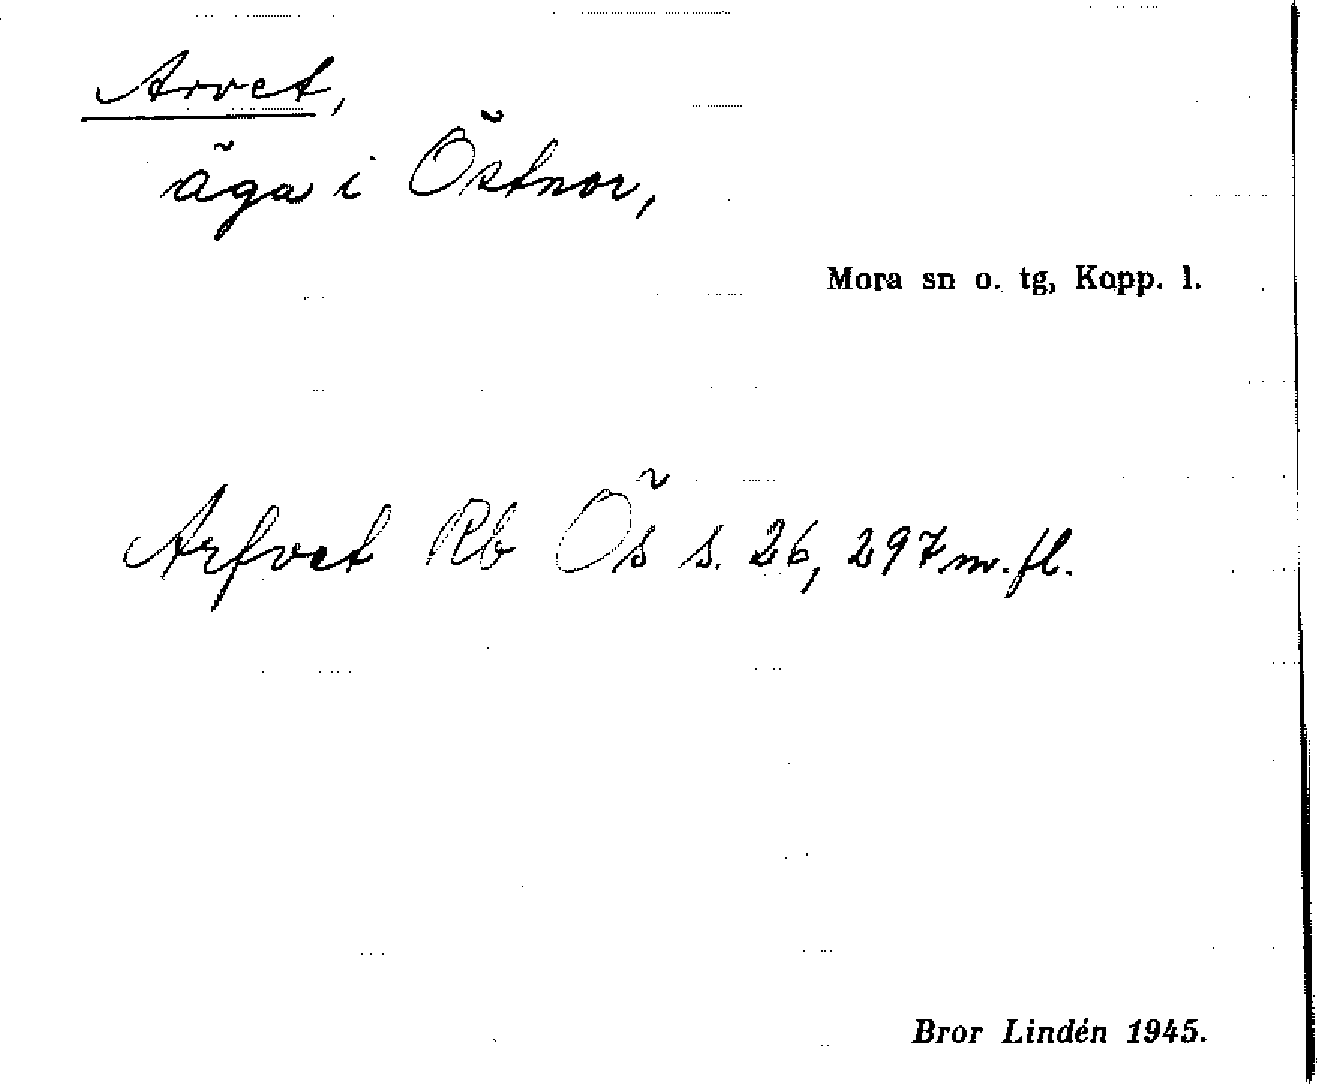 Arvet,
äga i Östnor,
Mora sn o. tg, Kopp. l.
Arfvet Rb Ös s. 26, 297 m. fl.
Bror Lindén 1945.